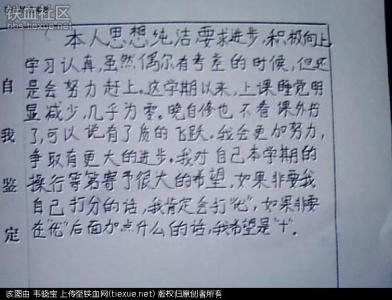 铁血社区
tiexue.net
本人思想纯洁要求进步,积极向上,
学习认真,虽然偶尔有考差的时候,但还
是会努力赶上。这学期以来,上课睡觉明
显减少,几乎为零。晚自修也不看课外书
了,可以说有了质的飞跃,我会更加努力,
争取有更大的进步。我对自己本学期的
操行等第寄予很大的希望,如果非要我
自己打分的话,我肯定会打“优”,如果非要
在“优”后面加点什么的话,我希望是“+”。
自我鉴定
该图由 韦骁宝 上传至铁血网(tiexue.net) 版权归原创者所有